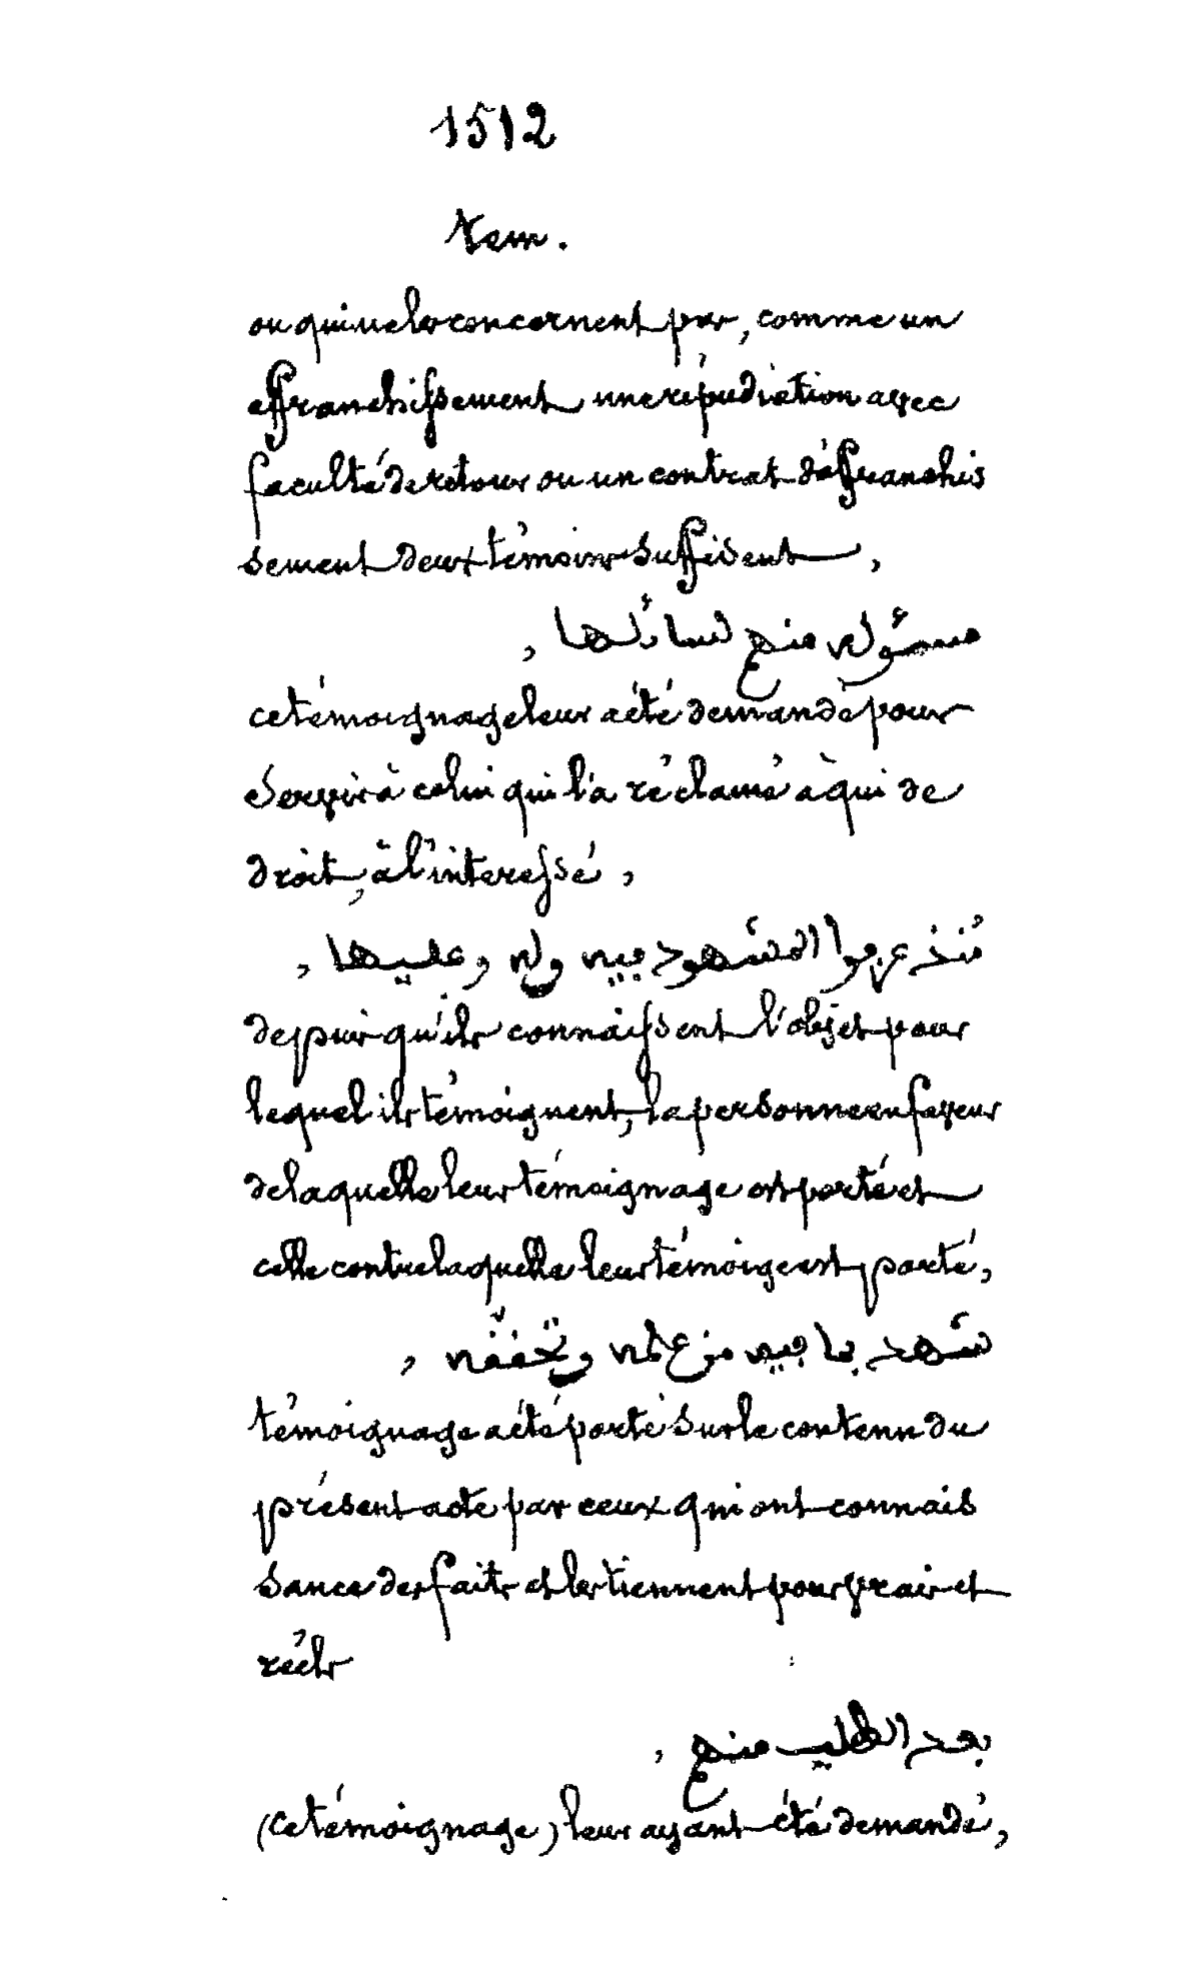 1512
tem.
ou qui ne les concernent pas, comme un
affranchissement une répudiation avec
faculté de retour ou un contrat d'affranchis
sement deux témoins suffisent,
مسئوله منهم لسائلها,
ce témoignage leur a été demandé pour
servir à celui qui l'a réclamé à qui de
droit, à l'interessé,
عرفوا المشهود فيه وله وعليها,
depuis qu'ils connaissent l'objet pour
lequel ils témoignent, la personne en faveur
de laquelle leur témoignage est porté et
celle contre laquelle leur témoige est porté,
شهد بما فيه من علمه وتحققه,
témoignage a été porté sur le contenu du
présent acte par ceux qui ont connais
sance des faits et les tiennent pour vrais et
réels
بعد الطلب منهم,
(ce témoignage) leur ayant été demandé,